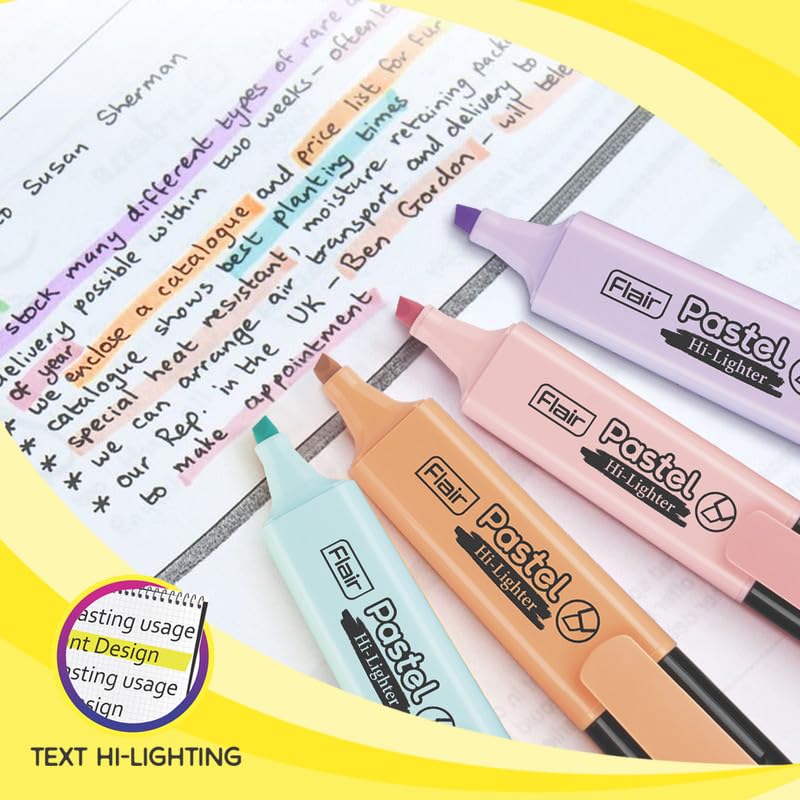 to Susan Sherman
stock many different types of rare
delivery possible within two weeks - often
of year
* we enclose a catalogue and price list for
* catalogue shows best planting times
special heat resistant, moisture retaining
* we can arrange air transport and delivery to
* our Rep. in the UK - Ben Gordon - will
to make appointment
Flair
Pastel
Hi-Lighter
Flair
Pastel
Hi-Lighter
Flair
Pastel
Hi-Lighter
Flair
Pastel
Hi-Lighter
asting usage
nt Design
sting usage
sign
TEXT HI-LIGHTING